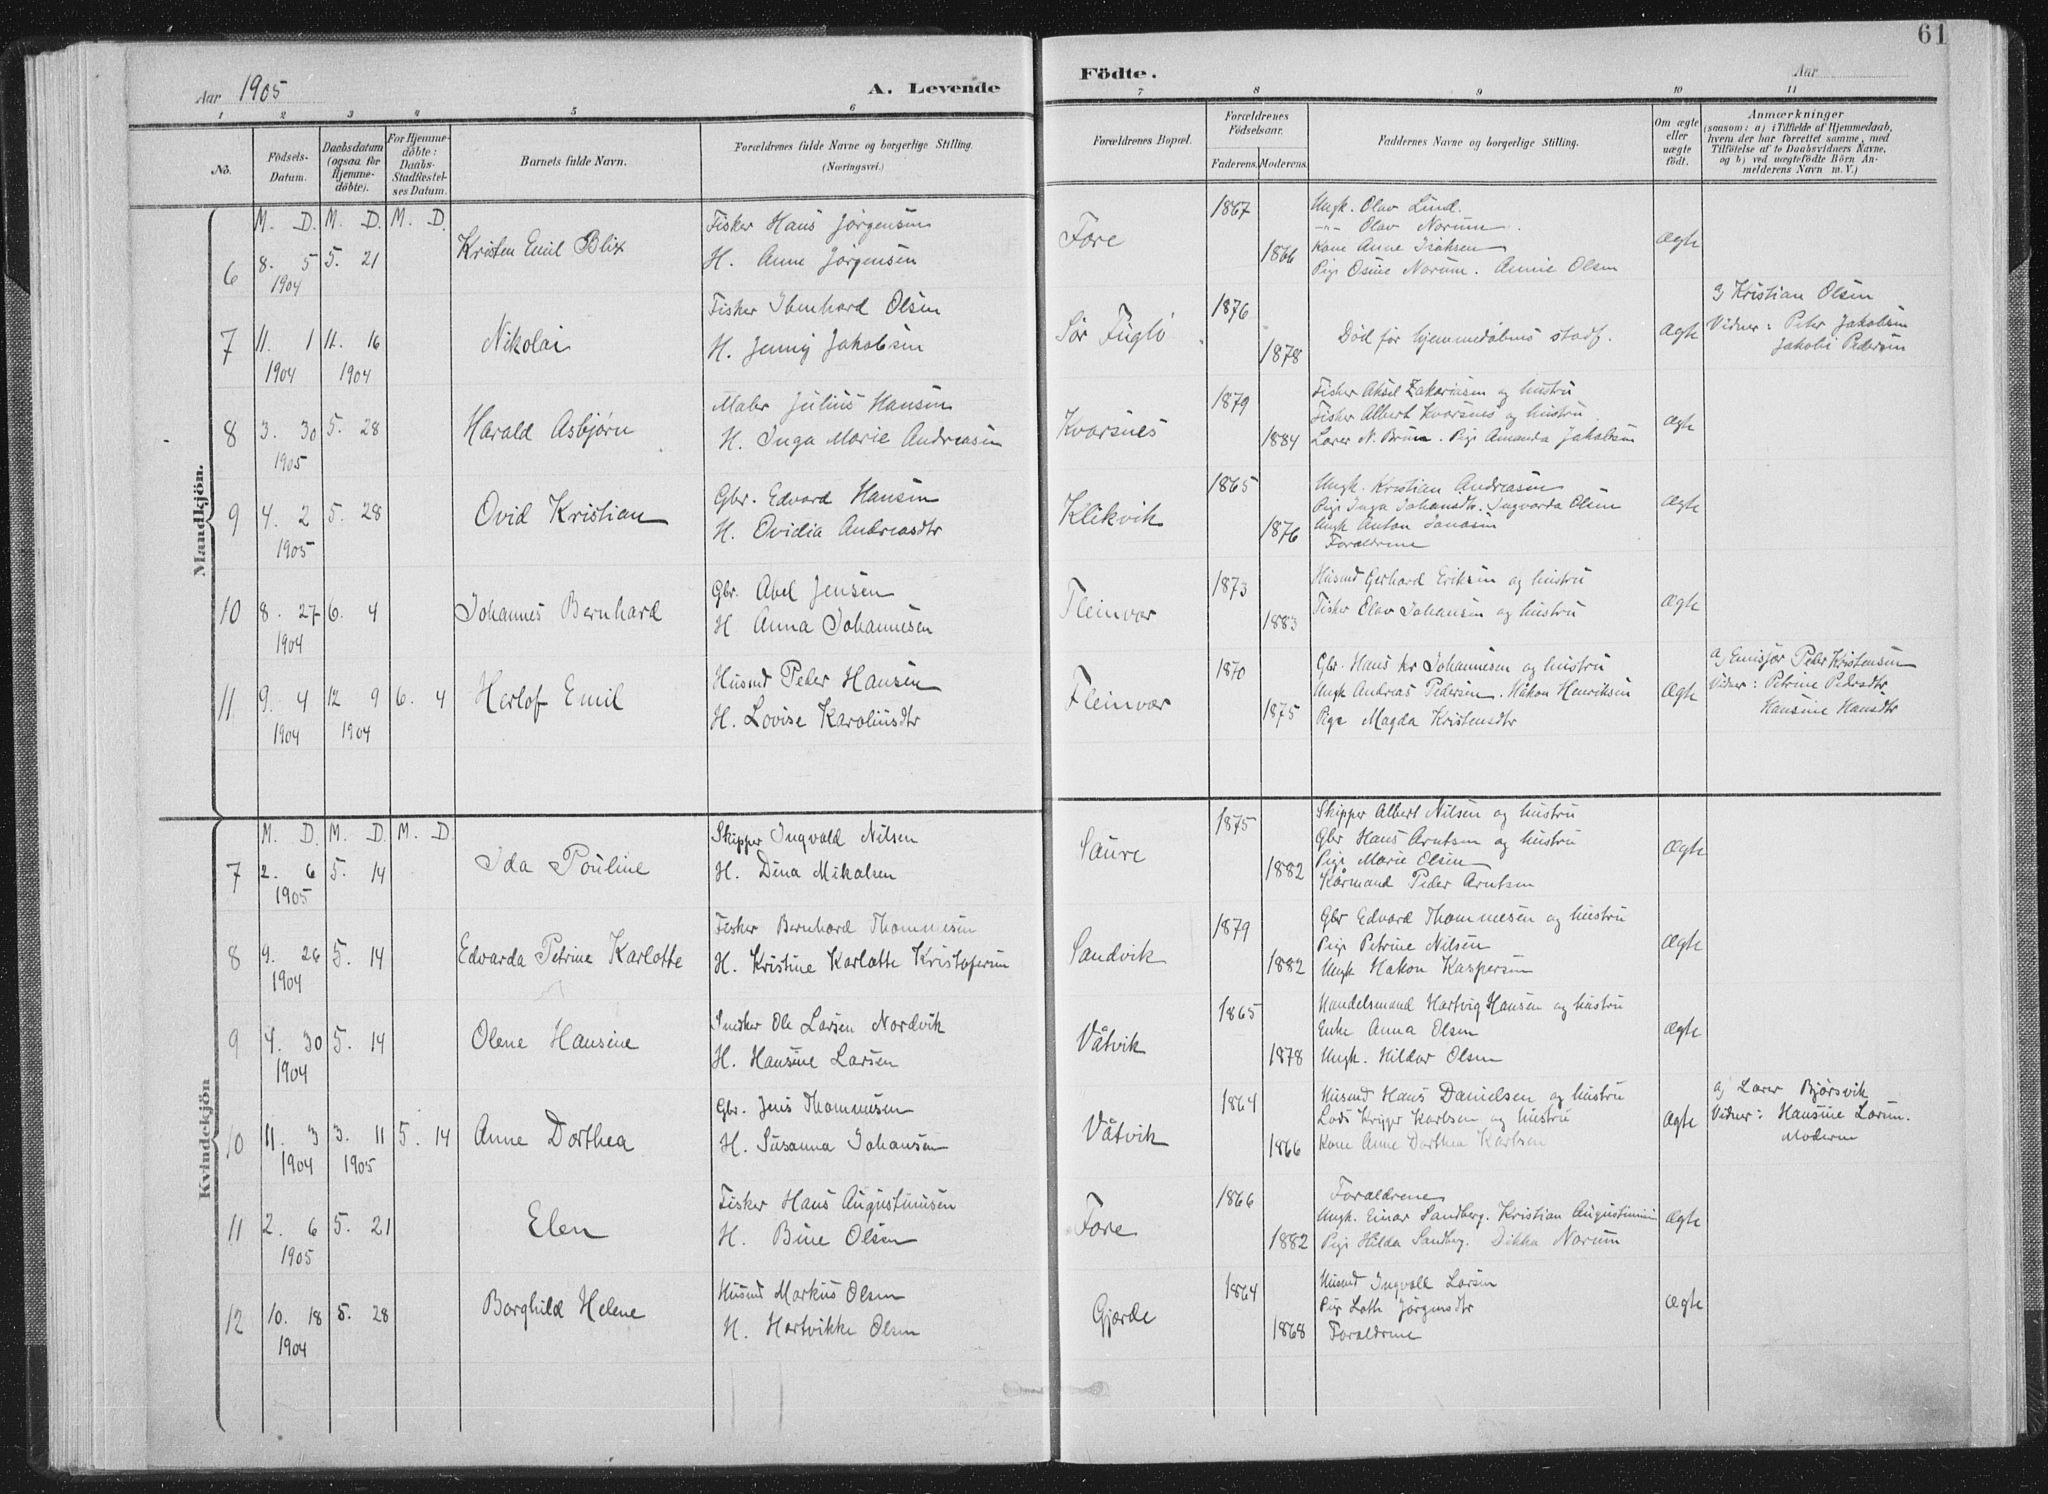 61
Aar 1905
A. Levende
Födte.
Aar
1 2 3 4 5 6 7 8 9 10 11
No.
Födsels-Datum.
Daabsdatum (ogsaa for Hjemmedöbte).
For Hjemmedöbte: Daabs-Stadfæstelses Datum.
Barnets fulde Navn.
Forældrenes fulde Navne og borgerlige Stilling.
(Næringsvei.)
Forældrenes Bopæl.
Forældrenes Födselsaar.
Faderens. Moderens.
Faddernes Navne og borgerlige Stilling.
Om ægte eller uægte födt.
Anmærkninger
(saasom: a) i Tilfælde af Hjemmedaab, hvem der har forrettet samme, med Tilföielse af to Daabsvidners Navne, og b) ved uægtefödte Börn Anmelderens Navn m. V.)
Mandkjön.
M. D. M. D. M. D.
6 8. 5 1904 5. 21 Kristen Emil Blix
Fisker Hans Jørgensen
H. Anne Jørgensen
Fore 1867 1866
Ungk. Olav Lind.
-"- Olav Norum.
Kone Anne Isaksen
Pige Osine Norum. Annie Olsen
Ægte
7 11. 1 1904 11. 16 1904 Nikolai
Fisker Ibenhard Olsen
H. Jenny Jakobsen
Sør Fuglø 1876 1878
Død før hjemmedåbens stadf.
Ægte
a) Kristian Olsen
Vidner: Peter Jakobsen
Jakobi Pedersen
8 3. 30 1905 5. 28 Harald Asbjørn
Maler Julius Hansen
H. Inga Marie Andreasen
Kvarsnes 1879 1884
Fisker Aksel Zakariasen og hustru
Fisker Albert Kvarsnes og hustru
Lærer N. Brun. Pige Amanda Jakobsen
Ægte
9 4. 2 1905 5. 28 Ovid Kristian
Gbr. Edvard Hansen
H. Ovidia Andreasdtr
Klikvik 1865 1876
Ungk. Kristian Andreasen
Pige Inga Johansdtr. Ingvarda Olsen
Ungk Anton Jonasen
Forældrene
Ægte
10 8. 27 1904 6. 4 Johannes Bernhard
Gbr. Abel Jensen
H Anna Johannesen
Fleinvær 1873 1883
Husmd Gerhard Eriksen og hustru
Fisker Olav Johansen og hustru
Ægte
11 9. 4 1904 12 9 1904 6. 4 Herlof Emil
Husmd Peder Hansen
H. Lovise Karoliusdtr
Fleinvær 1870 1875
Gbr. Hans Kr Johannesen og hustru
Ungk Andreas Pedersen. Håkon Henriksen
Pige Magda Kristensdtr
Ægte
a) Emisjør Peder Kristensen
Vidner: Petrine Pedersdtr
Hansine Hansdtr
Kvindekjön
M. D. M. D. M. D.
7 2. 6 1905 5. 14 Ida Pouline
Skipper Ingvald Nilsen
H. Dina Mikalsen
Saure 1875 1882
Skipper Albert Nilsen og hustru
Gbr Hans Arntsen og hustru
Pige Marie Olsen
Kårmand Peder Arntsen
Ægte
8 9. 26 1904 5. 14 Edvarda Petrine Karlotte
Fisker Bernhard Thommesen
H. Kristine Karlotte Kristofersen
Sandvik 1879 1882
Gbr Edvard Thommesen og hustru
Pige Petrine Nilsen
Ungk Hakon Kaspersen
Ægte
9 4. 30 1904 5. 14 Olene Hansine
Snedker Ole Larsen Nordvik
H. Hansine Larsen
Våtvik 1865 1878
Handelsmand Hartvig Hansen og hustru
Enke Anna Olsen
Ungk. Hildor Olsen
Ægte
10 11. 3 1904 3. 11 1905 5. 14 Anne Dorthea
Gbr. Jens Thommesen
H. Susanna Johansen
Våtvik 1864 1866
Husmd Hans Danielsen og hustru
Lods Krigger Karlsen og hustru
Kone Anne Dorthea Karlsen
Ægte
a) Lærer Bjørsvik
Vidner: Hansine Larsen.
Moderen
11 2. 6 1905 5. 21 Elen
Fisker Hans Augustinusen
H. Bine Olsen
Fore 1866 1882
Forældrene
Ungk. Einar Sandberg. Kristian Augustinusen
Pige Hilda Sandberg. Dikka Norum
Ægte
12 10. 18 1904 5. 28 Borghild Helene
Husmd Markus Olsen
H. Hartvikke Olsen
Gjærde 1864 1868
Husmd Ingvald Larsen
Pige Lath Jørgensdtr
Forældrene
Ægte